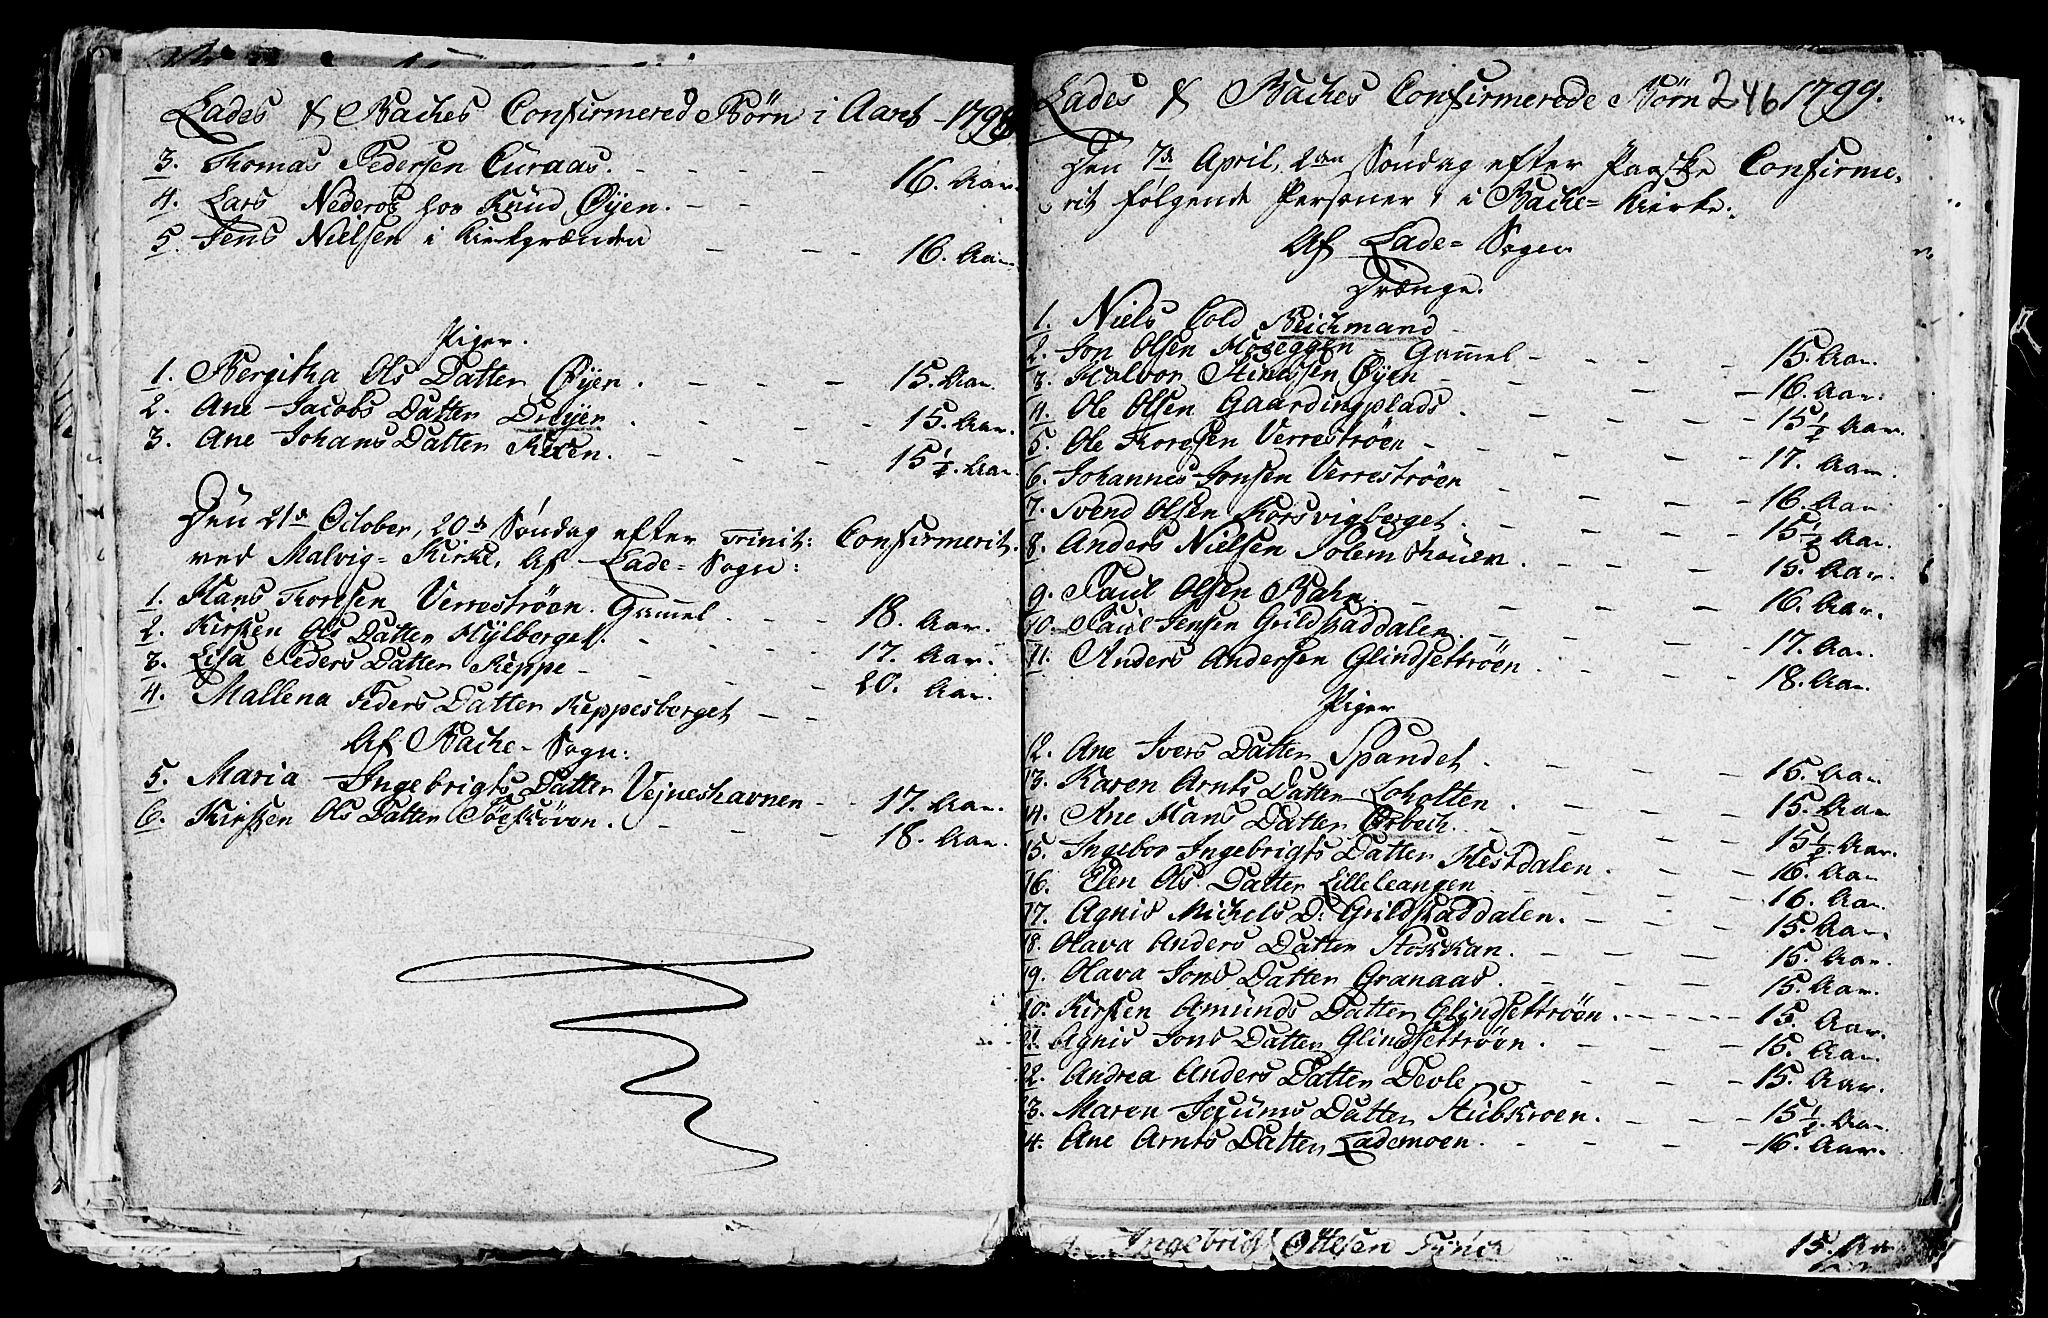 Lades & Baches Confirmered Börn i Aaret 1798
3. Thomas Pedersen Curaas. - - - - 16. Aar.
4. Lars Nederos hos Knud Øyen. - -
5. Jens Nielsen i Kirkegrænden - - - 16. Aar.
Piger.
1. Bergitha Ols Datter Øyen. - - - 15. Aar.
2. Ane Jacobs Datter Dreyer. - - - 15. Aar.
3. Ane Johans Datter Reten. - - - 15 1/2. Aar.
Den 21de October, 20de Søndag efter Trinit: Confirmerit
ved Malvig-Kirke, Af Lade-Sogn:
1. Hans Toresen Verrestrøen. Gammel. - - 18. Aar.
2. Kirsten Ols Datter Hylberget. - - - 17. Aar.
3. Lisa Peders Datter Reppe - - - - 20. Aar.
4. Mallena Peders Datter Reppesberget - -
Af Bache-Sogn:
5. Maria Ingebrigts Datter Vejneshavnen - - 17. Aar.
6. Kirsten Ols Datter - - - 18. Aar.
Lades & Baches Confirmerede Börn 246 1799.
Den 7de April, 2den Søndag efter Paaske Confirme-
rit følgende Personer, i Bache-Kierke.
Af Lade-Sogn
Drænge.
1. Niels Cold Beichmand -
2. Jon Olsen Moseggen - Gammel - - - 15. Aar.
3. Halvor Øyen - - - - 16. Aar.
4. Ole Olsen Gaardingplads. - - - 15 1/2 Aar.
5. Ole Toresen Verrestrøen - - - 17. Aar.
6. Johannes Jonsen Verrestrøen - - - 16. Aar.
7. Svend Olsen Korsvigberget. - - - 15 1/2 Aar.
8. Anders Nielsen - - - 15. Aar.
9. Paul Olsen Bahn. - - - - 16. Aar.
10. Paul Jensen Grildstaddalen. - - - 17. Aar.
11. Anders Andersen Glindsettrøen - - - 18. Aar.
Piger
12. Ane Ivers Datter Spandet. - - - 15. Aar.
13. Karen Arnts Datter Loholten. - - - 15. Aar.
14. Ane Mans Datter Orbech. - - - 15 1/2. Aar.
15. Ingebor Ingebrigts Datter Hestdalen. - - - 16. Aar.
16. Elen Ols Datter Lilleleangen - - - 16. Aar.
17. Agnis Michels D: Grildstaddalen. - - - 15. Aar.
18. Olava Anders Datter Stokkan. - - - 15. Aar.
19. Olava Jons Datter Granaas. - - - 15. Aar.
20. Kirsten Amunds Datter Glindsettrøen. - - - 15. Aar.
21. Agnis Jons Datter Glindsettrøen. - - - 15. Aar.
22. Andrea Anders Datter Devle - - - 15. Aar.
23. Maren Datter Stubskroen. - - - 15 1/2. Aar.
24. Ane Arnts Datter Lademoen. - - - 16. Aar.
Ingebrigt Ottesen 15. Aar